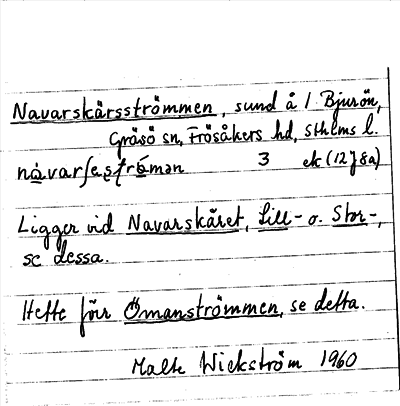 Navarskärsströmmen, sund å 1 Bjurön,
Gräsö sn, Frösåkers hd, Sthlms l.
nàvarʃęstrǿmən 3 ek (12 J 8a)
Ligger vid Navarskäret, Lill- o. Stor-,
se dessa.
Hette förr Ömanströmmen, se detta.
Malte Wickström 1960